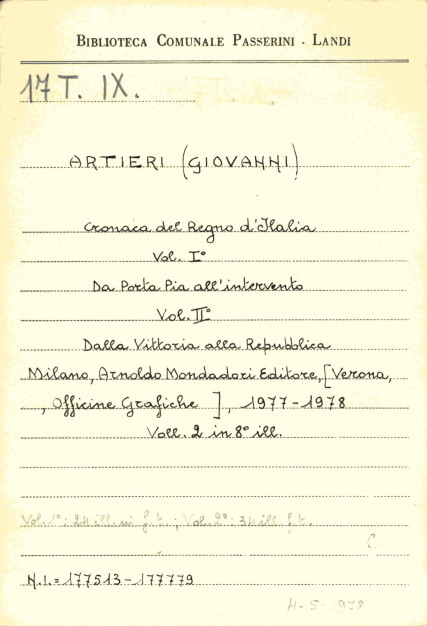 BIBLIOTECA COMUNALE PASSERINI - LANDI
17 T. IX.
ARTIERI (GIOVANNI)
Cronaca del Regno d'Italia
Vol. I°
Da Porta Pia all'intervento
Vol. II°
Dalla Vittoria alla Repubblica
Milano, Arnoldo Mondadori Editore, [Verona,
, Officine Grafiche ], 1977-1978
Voll. 2 in 8° ill.
Vol. 1°: 24 ill. ni f.t.; Vol. 2°: 34 ill. f.t.
C
N.I. = 177513-177779
4-5-978